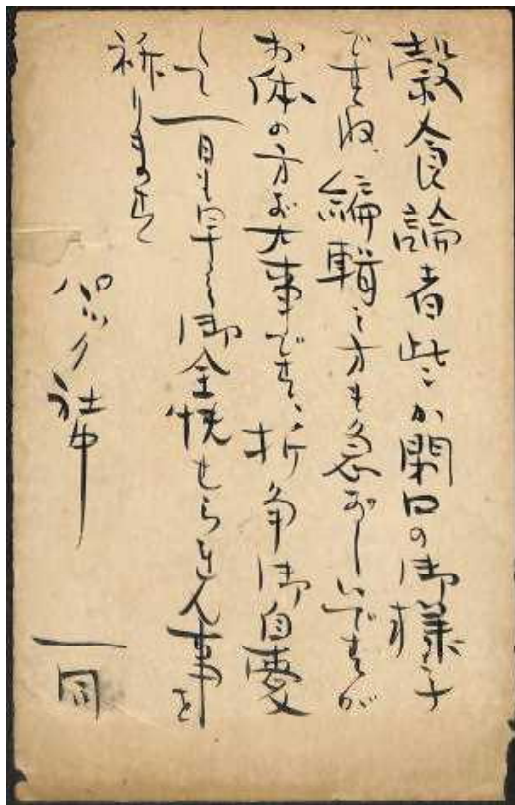 穀食論者些か閉口の御様子
ですね、編輯の方も急がしいですが
お体の方が大事です、折角御自愛
して一日も早く御全快せられん事を
祈ります
パック社中
一同